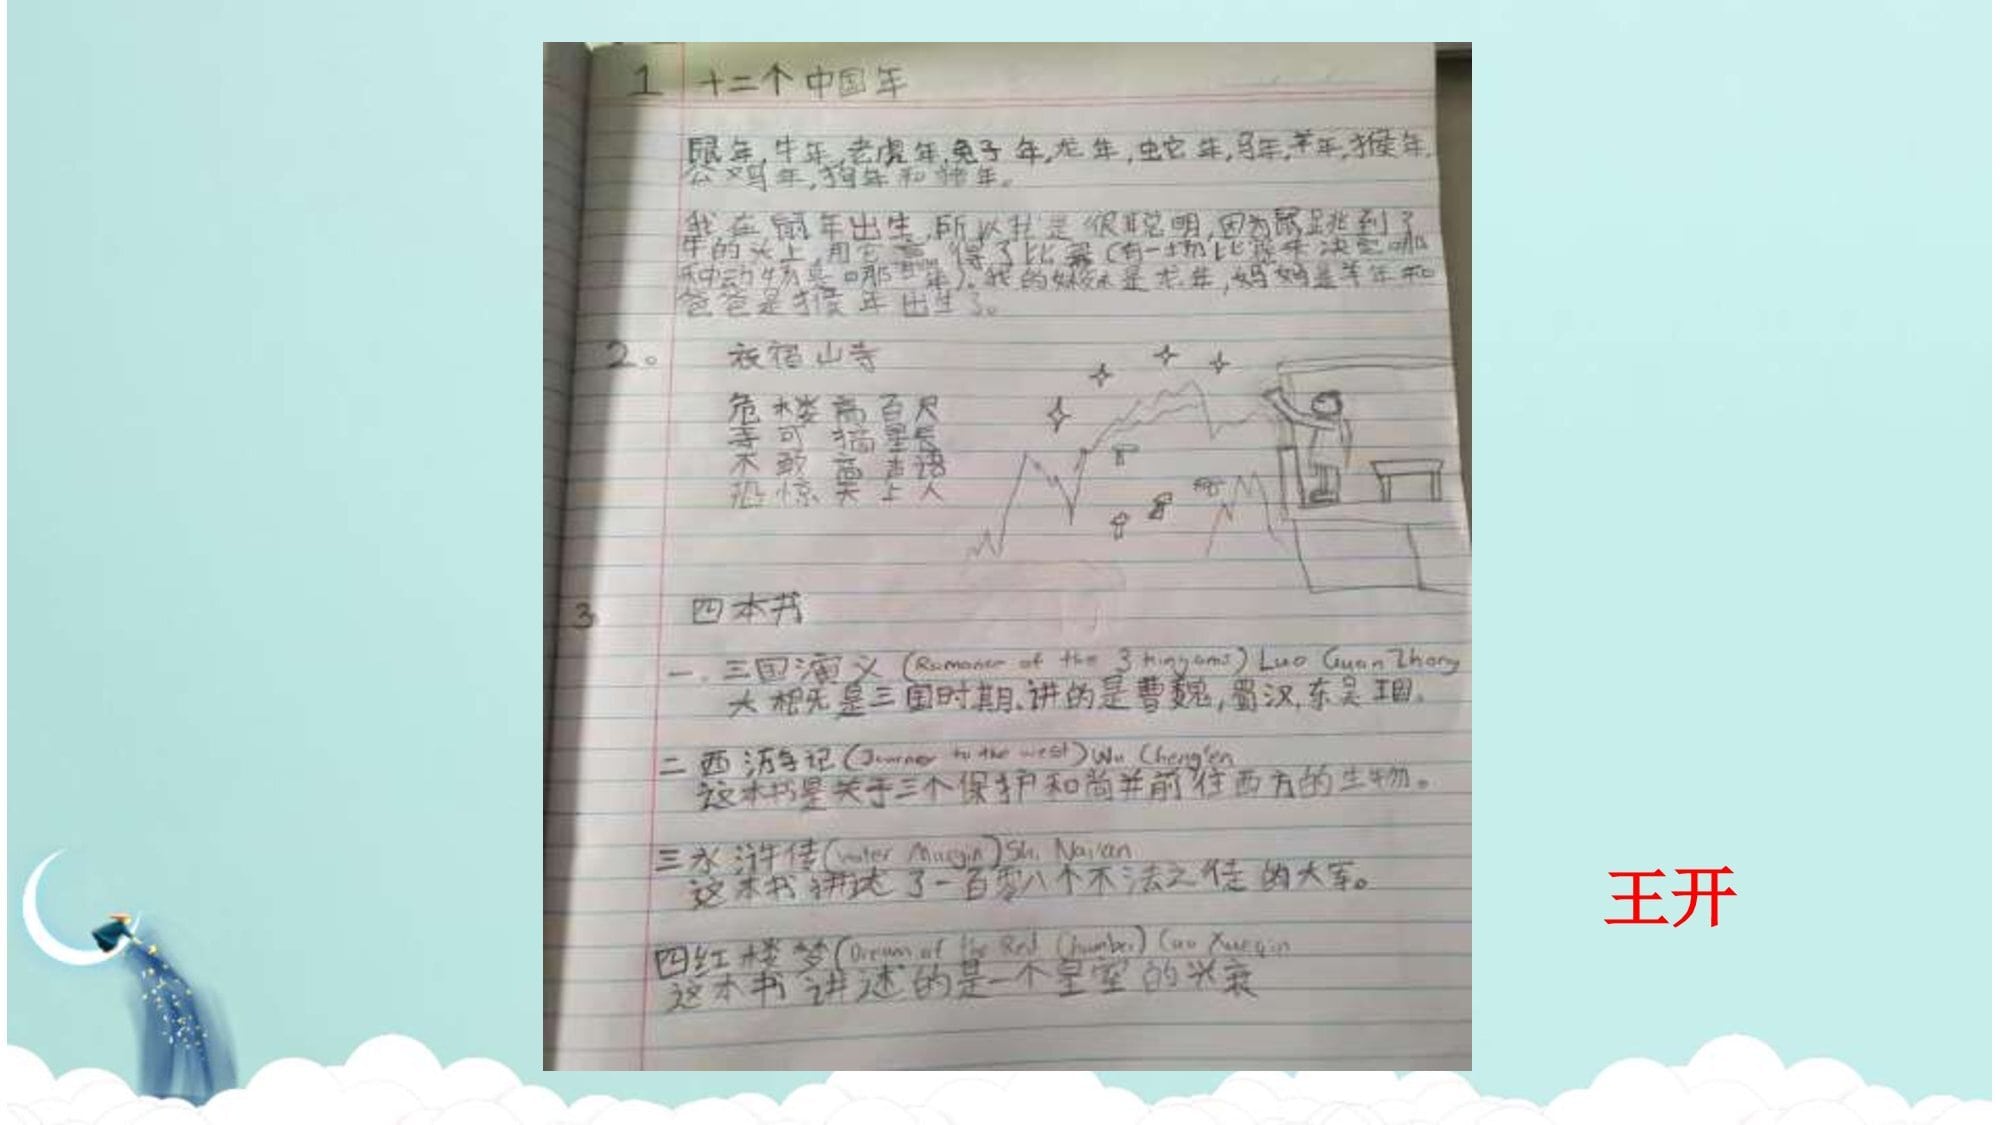 1 十二个中国年
鼠年,牛年,老虎年,兔子年,龙年,虫蛇年,马年,羊年,猴年,
公鸡年,狗年和猪年。
我在鼠年出生,所以我是很聪明,因为鼠跳到了
牛的头上,用它赢得了比赛(有一场比赛来决定哪
种动物是哪一年)。我的妹妹是龙年,妈妈是羊年和
爸爸是猴年出生了。
2。 夜宿山寺
危楼高百尺
手可摘星辰
不敢高声语
恐惊天上人
3 四本书
一.三国演义(Romance of the 3 kingoms) Luo Guan Zhong
大概是三国时期.讲的是曹魏,蜀汉,东吴王国.
二西游记(Journer to the west) Wu Cheng'en
这本书是关于三个保护和尚并前往西方的生物。
三水浒传(water Margin) Shi Nai'an
这本书讲述了一百零八个不法之徒的大军。
四红楼梦(Dream of the Red Chamber) Cao Xueqin
这本书讲述的是一个皇室的兴衰
王开